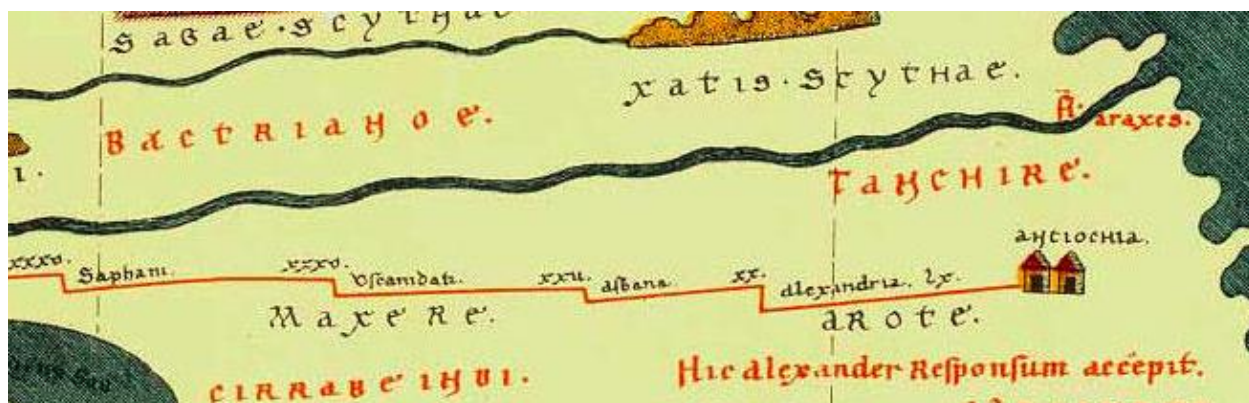 SAGAE·SCYTHAE
XATIS·SCYTHAE.
BACTRIANOE.
R̄. araxes.
TANCHIRE.
I.
ANTIOCHIA.
xxxv. Saphani. xxxv. Vscanidati. xxii. asbana. xx. alexandria. lx.
MAXERE.
AROTE.
CIRRABE INDI.
Hic alexander Responsum accepit.